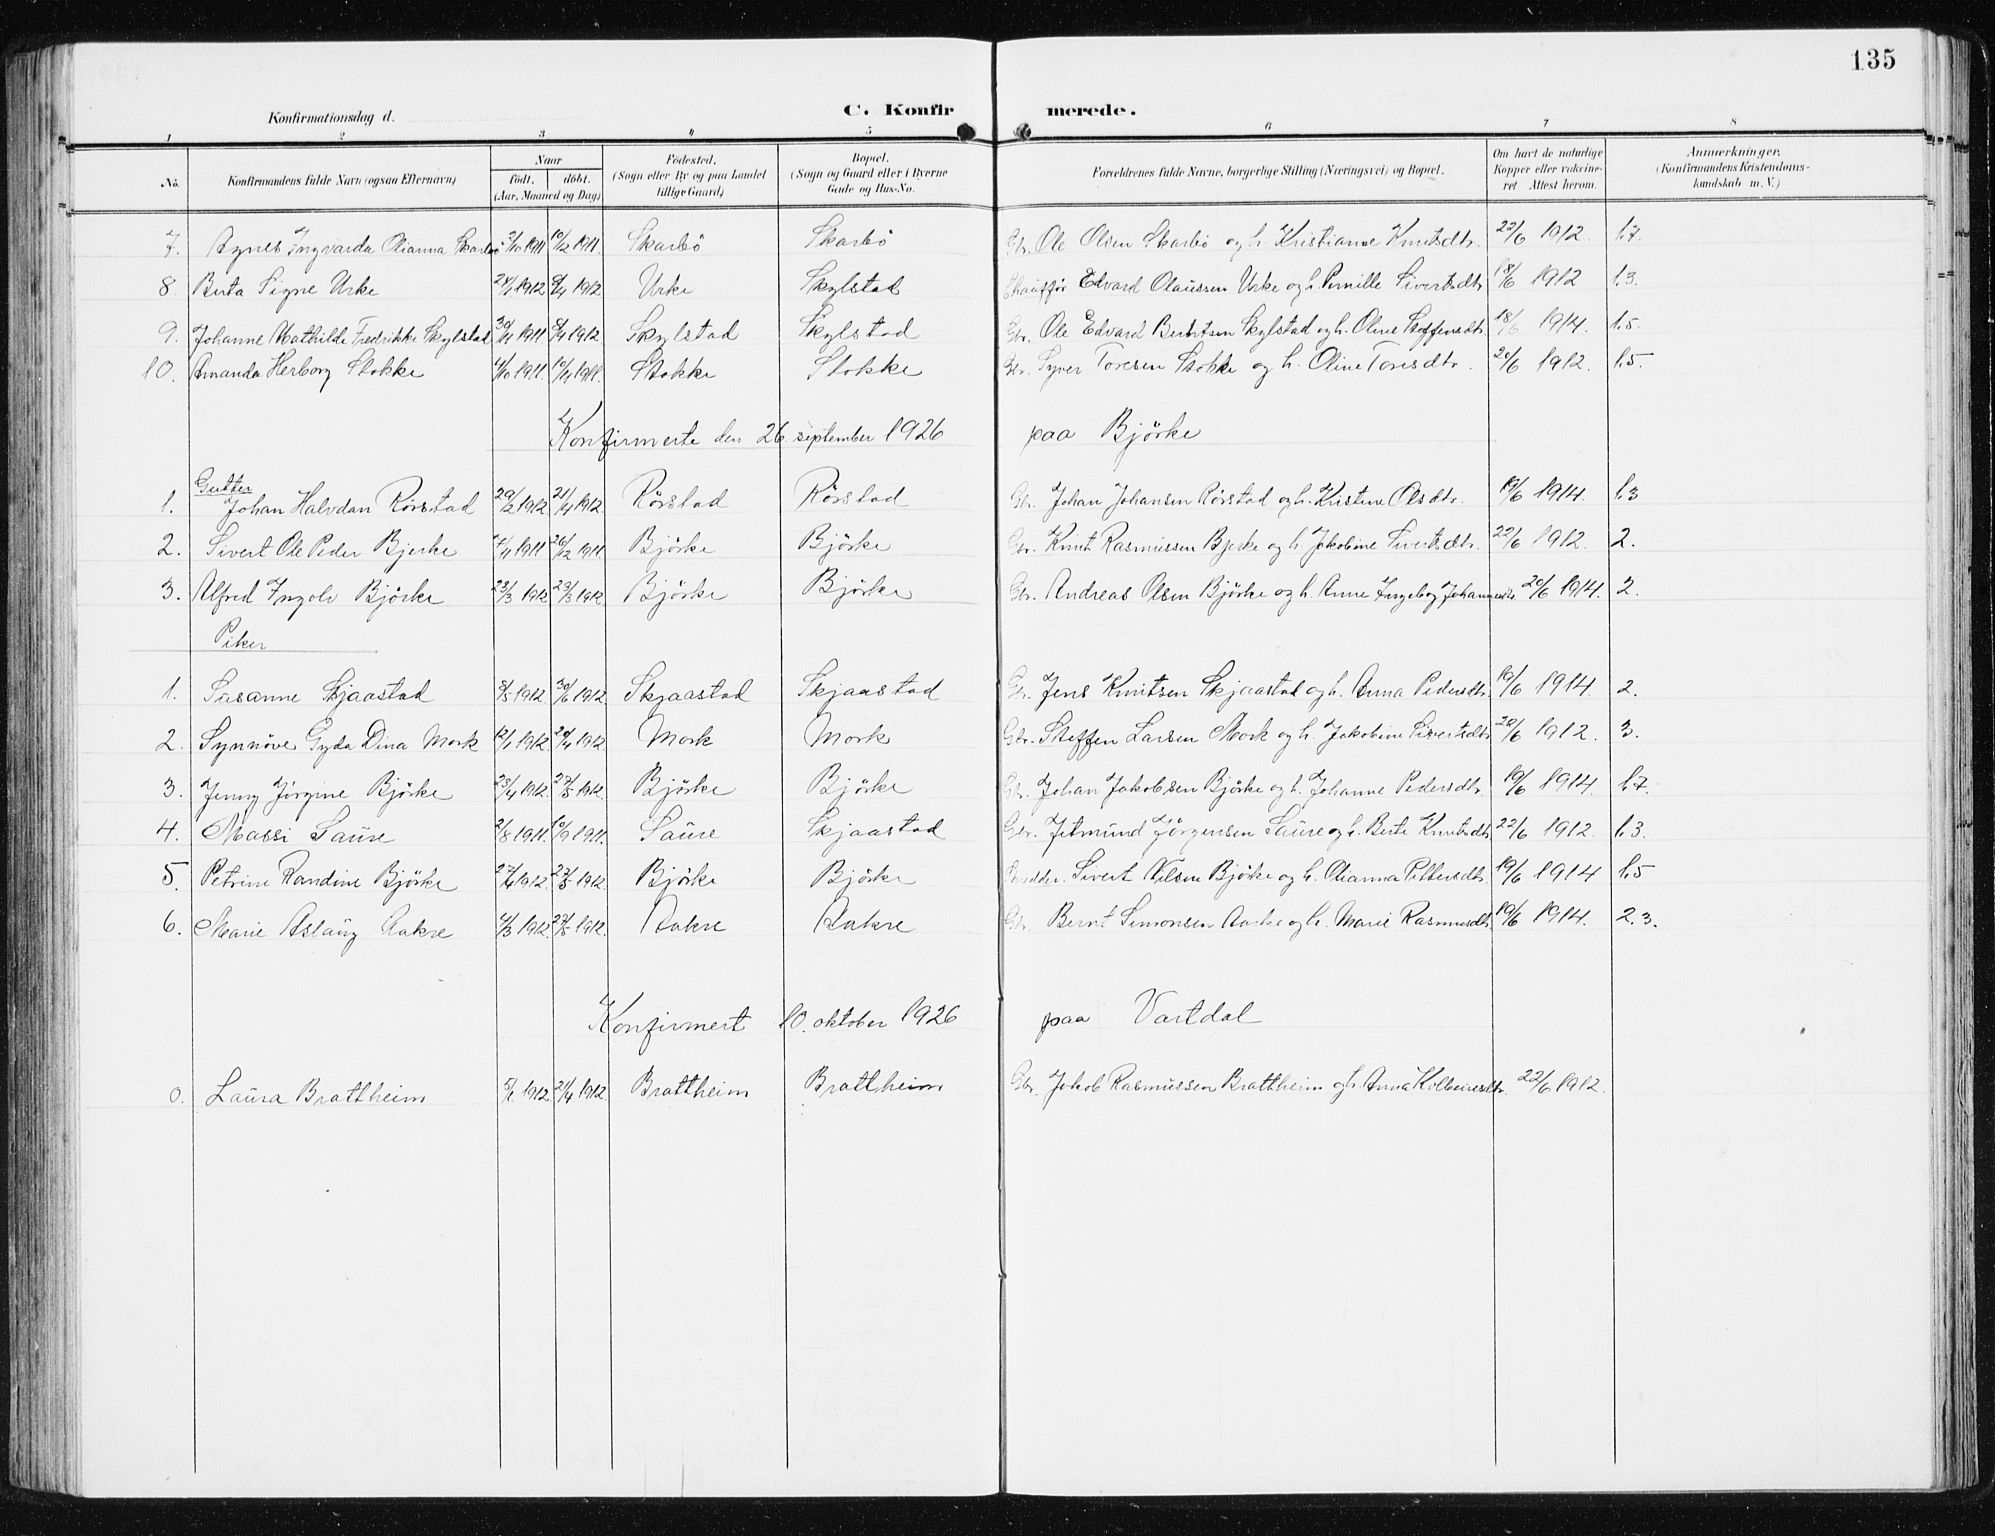 135
Konfirmationsdag d. C. Konfirmerede.
1 2 3 4 5 6 7 8
No. Konfirmandens fulde Navn (ogsaa Efternavn) Naar født. døbt. (Aar, Maaned og Dag) Fødested. (Sogn eller By og paa Landet tillige Gaard) Bopæl. (Sogn og Gaard eller i Byerne Gade og Hus-No. Forældrenes fulde Navne, borgerlige Stilling (Næringsvei) og Bopæl. Om havt de naturlige Kopper eller vakcineret Attest herom. Anmærkninger. (Konfirmandens Kristendomskundskab m. V.)
7. Agnes Ingvarda Olianna Skarbø 2/10 1911 10/12 1911. Skarbö Skarbö Gbr. Ole Olsen Skarbö og h. Kristianne Knutsdtr. 22/6 1912. 1.7.
8. Berta Signe Urke 24/1 1912 8/4 1912 Urke Skylstad Chaufför Edvard Olaussen Urke og h. Pernille Sivertsdtr 18/6 1912 1.3.
9. Johanne Mathilde Fredrikke Skylstad 1911 8/4 1912. Skylstad Skylstad Gbr. Ole Edvard Berntsen Skylstad og h. Oline Steffensdtr. 18/6 1914. 1.5.
10. Amanda Herborg Stokke 4/10 1911. 1911. Stokke Stokke Gbr. Syver Toresen Stokke og h. Oline Toresdtr. 20/6 1912. 1.5.
Konfirmerte den 26. september 1926 paa Björke
Gutter
1. Johan Halvdan Rörstad 29/2 1912 21/4 1912. Rörstad Rörstad Gbr. Johan Johansen Rörstad og h. Kristine Olsdtr. 19/6 1914. 1.3
2. Sivert Ole Peder Bjerke 1911 26/12 1911. Björke Björke Gbr. Knut Rasmussen Bjerke og h. Jakobine Sivertsdtr. 22/6 1912. 2.
3. Alfred Ingolv Björke 23/3 1912 29/3 1912. Björke Björke Gbr. Andreas Olsen Björke og h. Anne Ingeborg Johannesdtr. 20/6 1914. 2.
Piker
1. Susanne Skjaastad 8/5 1912. 30/6 1912. Skjaastad Skjaastad Gbr. Jens Knutsen Skjaastad og h. Anna Pedersdtr. 19/6 1914 2.
2. Synnöve Gyda Dina Mork 12/1 1912. 20/4 1912 Mork Mork Gbr. Steffen Larsen Mork og h. Jakobine Sivertsdtr 20/6 1912. 3.
3. Jenny Jörgine Björke 23/4 1912. 27/5 1912. Björke Björke Gbr. Johan Jakobsen Björke og h. Johanne Pedersdtr. 19/6 1914. 1.7.
4. Massi Saure 2/8 1911. 10/9 1911. Saure Skjaastad Gbr. Jetmund Jörgensen Saure og h. Berte Knutsdtr 22/6 1912. 1.3.
5. Petrine Randine Björke 27/4 1912. 27/5 1912. Björke Björke Sivert Nilsen Björke og h. Olianna Pettersdtr. 19/6 1914 1.5
6. Marie Aslaug Aakre 4/3 1912. 27/5 1912. Aakre Aakre Gbr. Bernt Simonsen Aakre og h. Marie Rasmusdtr. 19/6 1914. 2.3.
Konfirmert 10. oktober 1926 paa Vartdal
0. Laura Brattheim 5/1 1912 21/4 1912. Brattheim Brattheim Gbr. Jakob Rasmussen Brattheim og h. Anna Kolbeinsdtr. 22/6 1912.